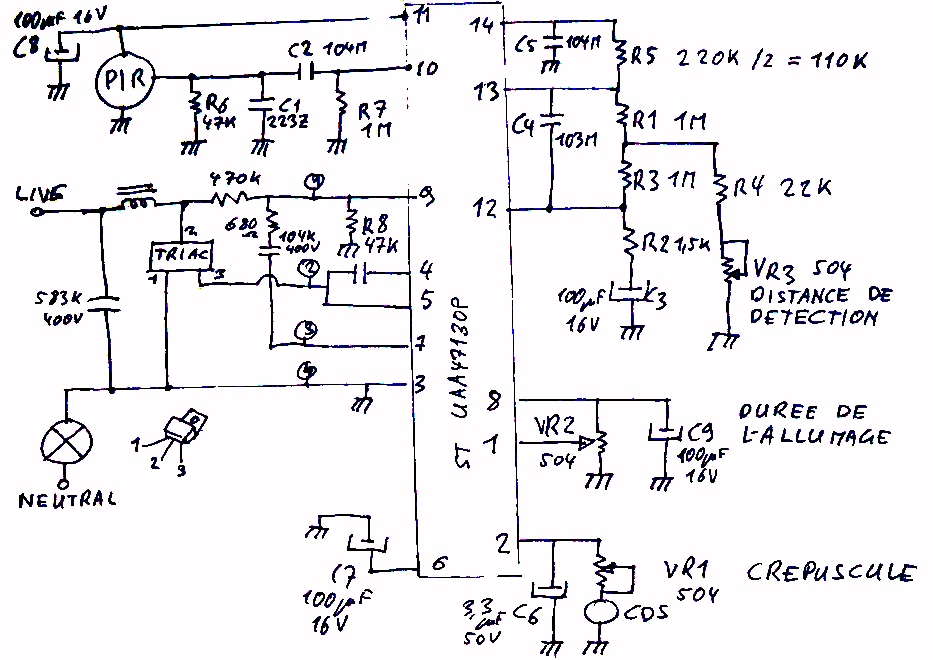 100µF 16V
C8
PIR
C2 104M
R6
47K
C1
223Z
R7
1M
11
10
14
C5
104M
R5 220K /2 = 110K
13
C4
103M
R1 1M
R3 1M
R4 22K
12
R2 1,5K
100µF
16V
C3
VR3 504
DISTANCE DE
DETECTION
LIVE
470K
1
9
680
Ω
104K
400V
R8
47K
2
TRIAC
1
3
2
4
5
583K
400V
3
7
4
3
ST UAA47130P
8
DUREE DE
L'ALLUMAGE
VR2
504
1
C9
100µF
16V
1
2
3
NEUTRAL
C7
100µF
16V
6
2
3,3
µF
50V
C6
VR1
504
CREPUSCULE
CDS